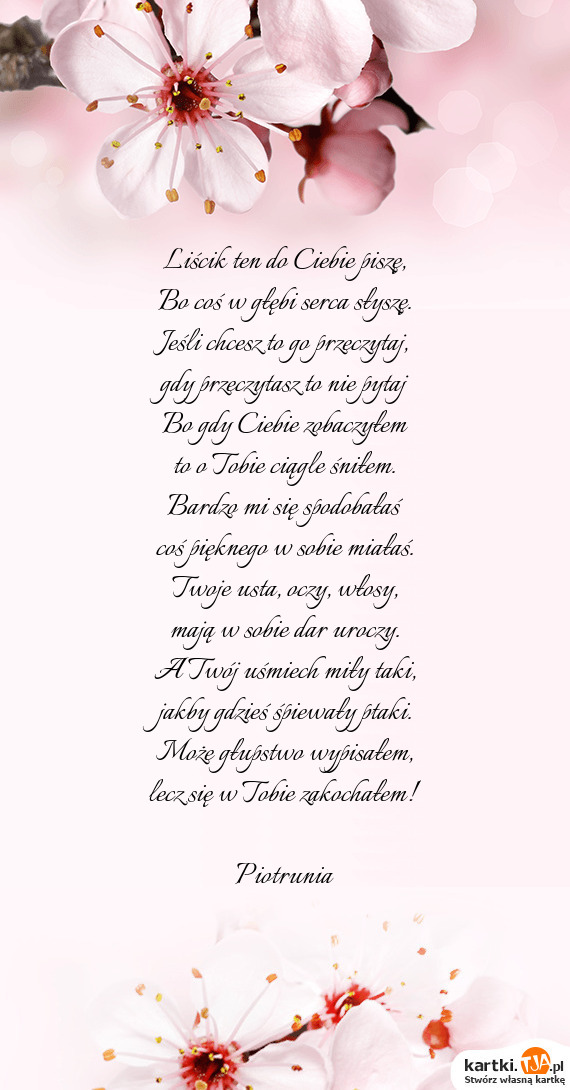 Liścik ten do Ciebie piszę,
Bo coś w głębi serca słyszę.
Jeśli chcesz to go przeczytaj,
gdy przeczytasz to nie pytaj
Bo gdy Ciebie zobaczyłem
to o Tobie ciągle śniłem.
Bardzo mi się spodobałaś
coś pięknego w sobie miałaś.
Twoje usta, oczy, włosy,
mają w sobie dar uroczy.
A Twój uśmiech miły taki,
jakby gdzieś śpiewały ptaki.
Może głupstwo wypisałem,
lecz się w Tobie zakochałem!
Piotrunia
kartki.TJA.pl
Stwórz własną kartkę